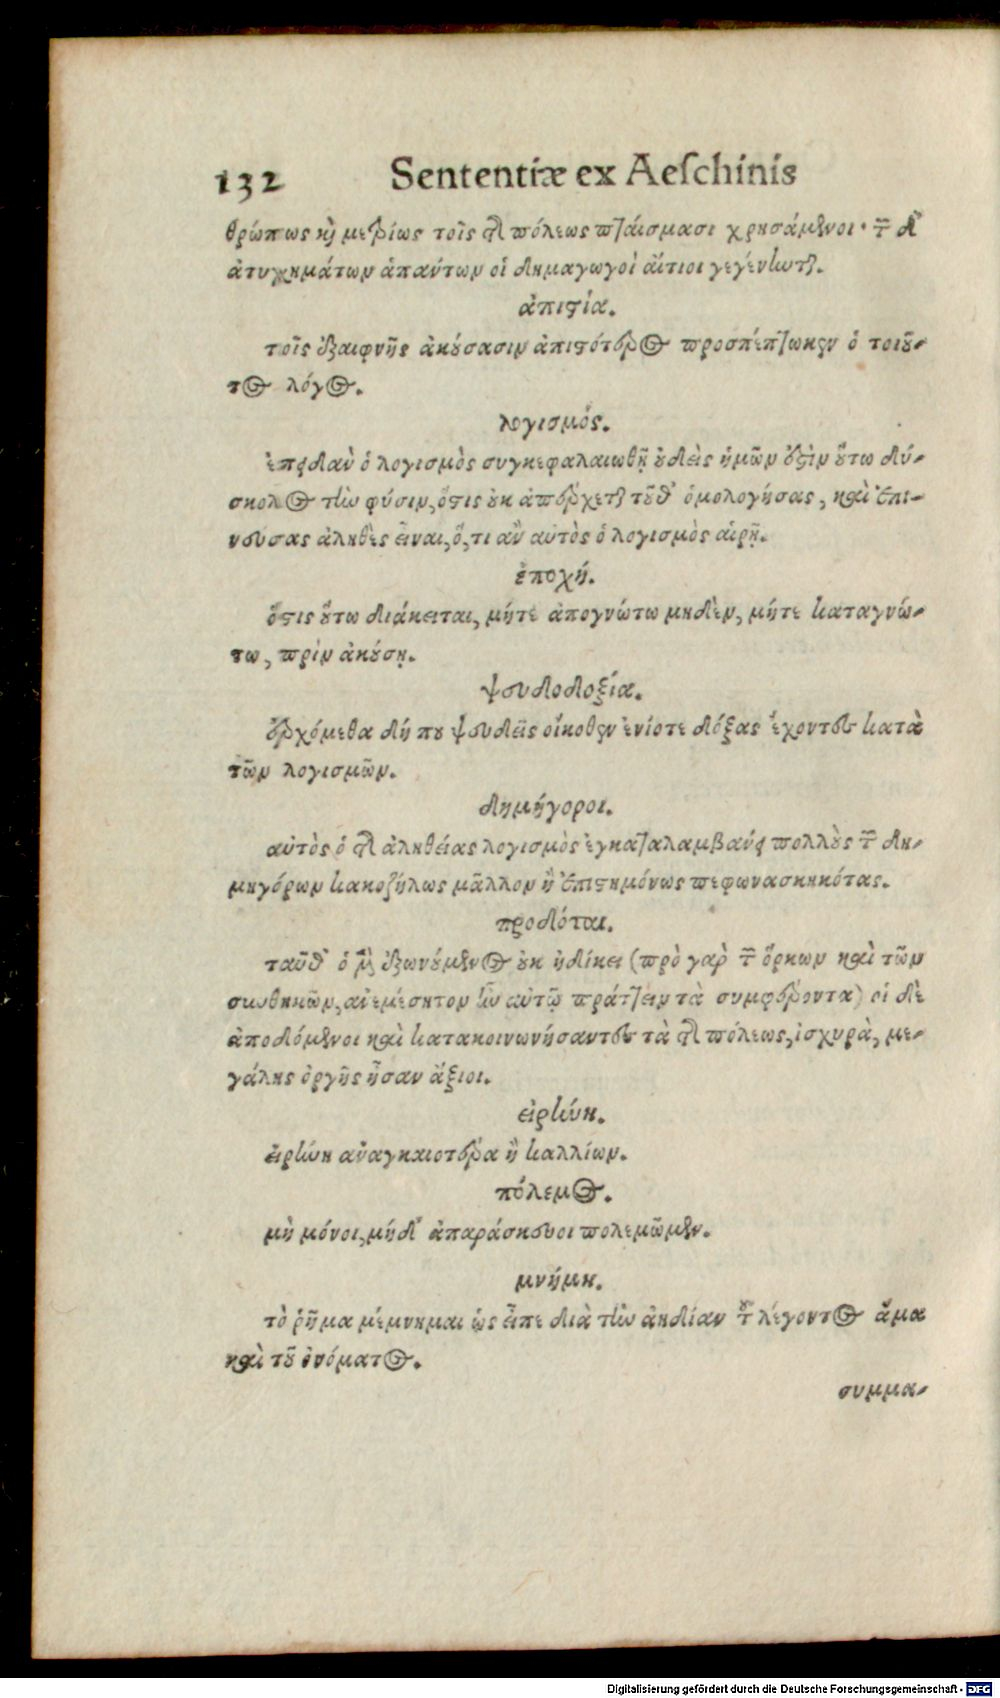 132 Sententiæ ex Aeſchinis
θρώπως καὶ μετρίως τοῖς τῆς πόλεως πταίσμασι χρησάμενοι· τῶν δ'
ἀτυχημάτων ἁπάντων οἱ δημαγωγοὶ αἴτιοι γεγένηνται.
ἀπιστία.
τοῖς ἐξαιφνῆς ἀκούσασιν ἀπιστότερος προσπέπτωκεν ὁ τοιοῦ-
τος λόγος.
λογισμός.
ἐπειδὰν ὁ λογισμὸς συγκεφαλαιωθῇ οὐδεὶς ἡμῶν ἐστὶν οὕτω δύ-
σκολος τὴν φύσιν, ὅστις οὐκ ἀπέρχεται τοῦθ' ὁμολογήσας, καὶ ἐπι-
νεύσας ἀληθὲς εἶναι, ὅ, τι ἂν αὐτὸς ὁ λογισμὸς αἱρῇ.
ἐποχή.
ὅστις οὕτω διάκειται, μήτε ἀπογνώτω μηδὲν, μήτε καταγνώ-
τω, πρὶν ἀκούσῃ.
ψευδοδοξία.
ἐρχόμεθα δή που ψευδεῖς οἴκοθεν ἐνίοτε δόξας ἔχοντες κατὰ
τῶν λογισμῶν.
δημήγοροι.
αὐτὸς ὁ τῆς ἀληθείας λογισμὸς ἐγκαταλαμβάνει πολλοὺς τῶν δη-
μηγόρων κακοζήλως μᾶλλον ἢ ἐπιστημόνως πεφωνασκηκότας.
προδόται.
ταῦθ' ὁ μὲν ἐξωνούμενος οὐκ ἠδίκει (πρὸ γὰρ τῶν ὅρκων καὶ τῶν
συνθηκῶν, ἀνεμέσητον ἦν αὐτῷ πράττειν τὰ συμφέροντα) οἱ δὲ
ἀποδόμενοι καὶ κατακοινωνήσαντες τὰ τῆς πόλεως, ἰσχυρὰ, με-
γάλης ὀργῆς ἦσαν ἄξιοι.
εἰρήνη.
εἰρήνη ἀναγκαιοτέρα ἢ καλλίων.
πόλεμος.
μὴ μόνοι, μήδ' ἀπαράσκευοι πολεμῶμεν.
μνήμη.
τὸ ῥῆμα μέμνημαι ὡς εἶπε διὰ τὴν ἀηδίαν τοῦ λέγοντος ἅμα
καὶ τοῦ ὀνόματος.
συμμα-
Digitalisierung gefördert durch die Deutsche Forschungsgemeinschaft - DFG